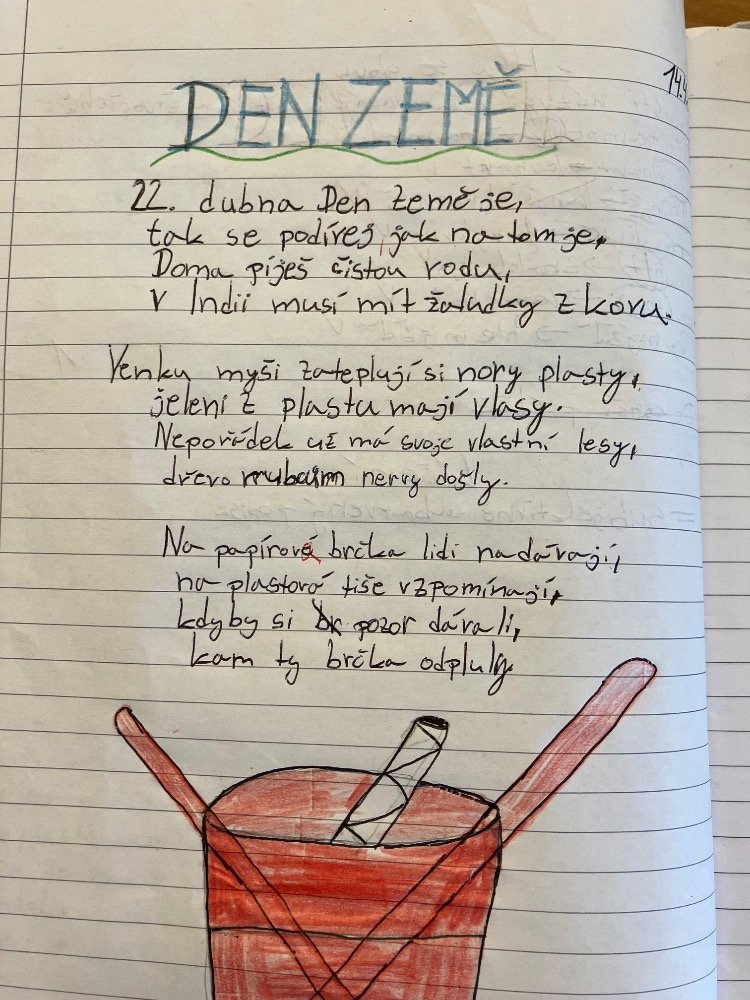 DEN ZEMĚ
14.4.
22. dubna Den Země je,
tak se podívej, jak na tom je.
Doma piješ čistou vodu,
v Indii musí mít žaludky z kovu.
Venku myši zateplují si nory plasty,
jeleni z plastu mají vlasy.
Nepořádek už má svoje vlastní lesy,
dřevo rubcům nervy došly.
Na papírová brčka lidi nadávají,
na plastová tiše vzpomínají,
kdyby si pozor dávali,
kam ty brčka odpluly